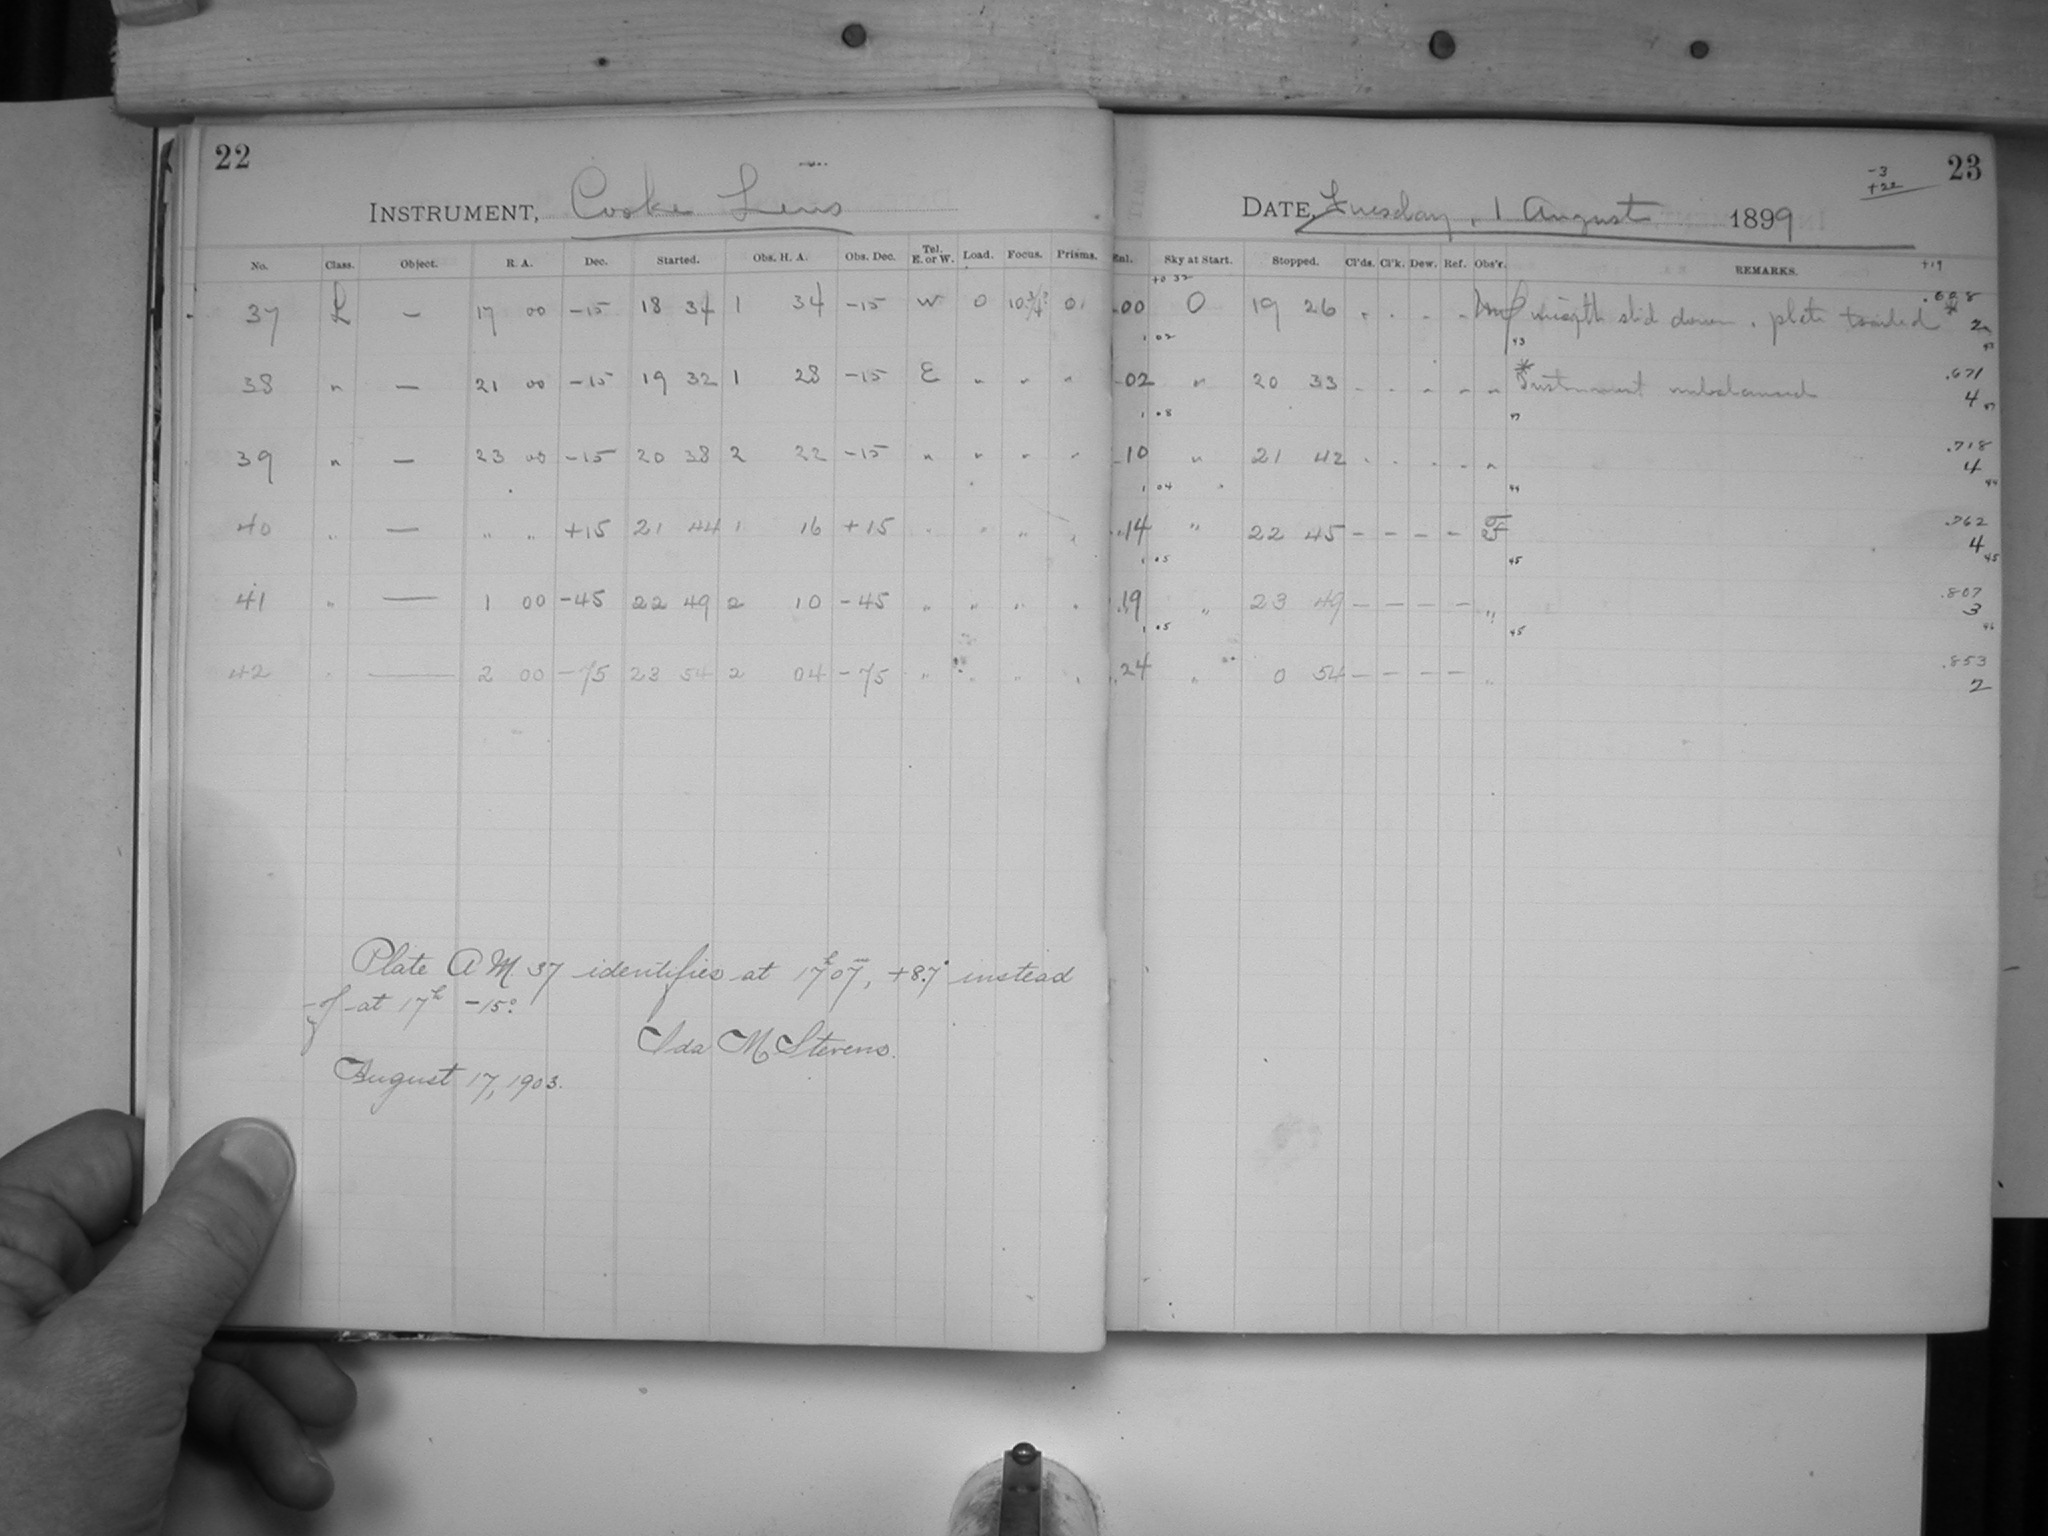 22
INSTRUMENT, Cooke Lens
No. Class. Object. R. A. Dec. Started. Obs. H. A. Obs. Dec. Tel. E. or W. Load. Focus. Prisms.
37 L — 17 00 -15 18 34 1 34 -15 W 0 10 3/4 0
38 " — 21 00 -15 19 32 1 28 -15 E " " "
39 " — 23 00 -15 20 38 2 22 -15 " " " "
40 " — " " +15 21 44 1 16 +15 " " " "
41 " — 1 00 -45 22 49 2 10 -45 " " " "
42 " — 2 00 -75 23 54 2 04 -75 " " " "
Plate AM 37 identifies at 17h 07m, +8.7° instead
of at 17h -15°.
Ida M Stevens.
August 17, 1903.
23
-3
+22
DATE, Tuesday, 1 August 1899
Enl. Sky at Start. Stopped. Cl'ds. Cl'k. Dew. Ref. Obs'r. REMARKS.
+19
+0 32
.00 0 19 26 . . - - weight slid down, plate trailed * 2
1 02 43
.02 " 20 33 - - " " " * Instrument unbalanced .671 4
1 08 47
.10 " 21 42 . . . . " .718 4
1 04 44
.14 " 22 45 - - - - .762 4
1 05 45
.19 " 23 49 - - - - " .807 3
1 05 45 46
.24 " 0 54 - - - - " .853 2